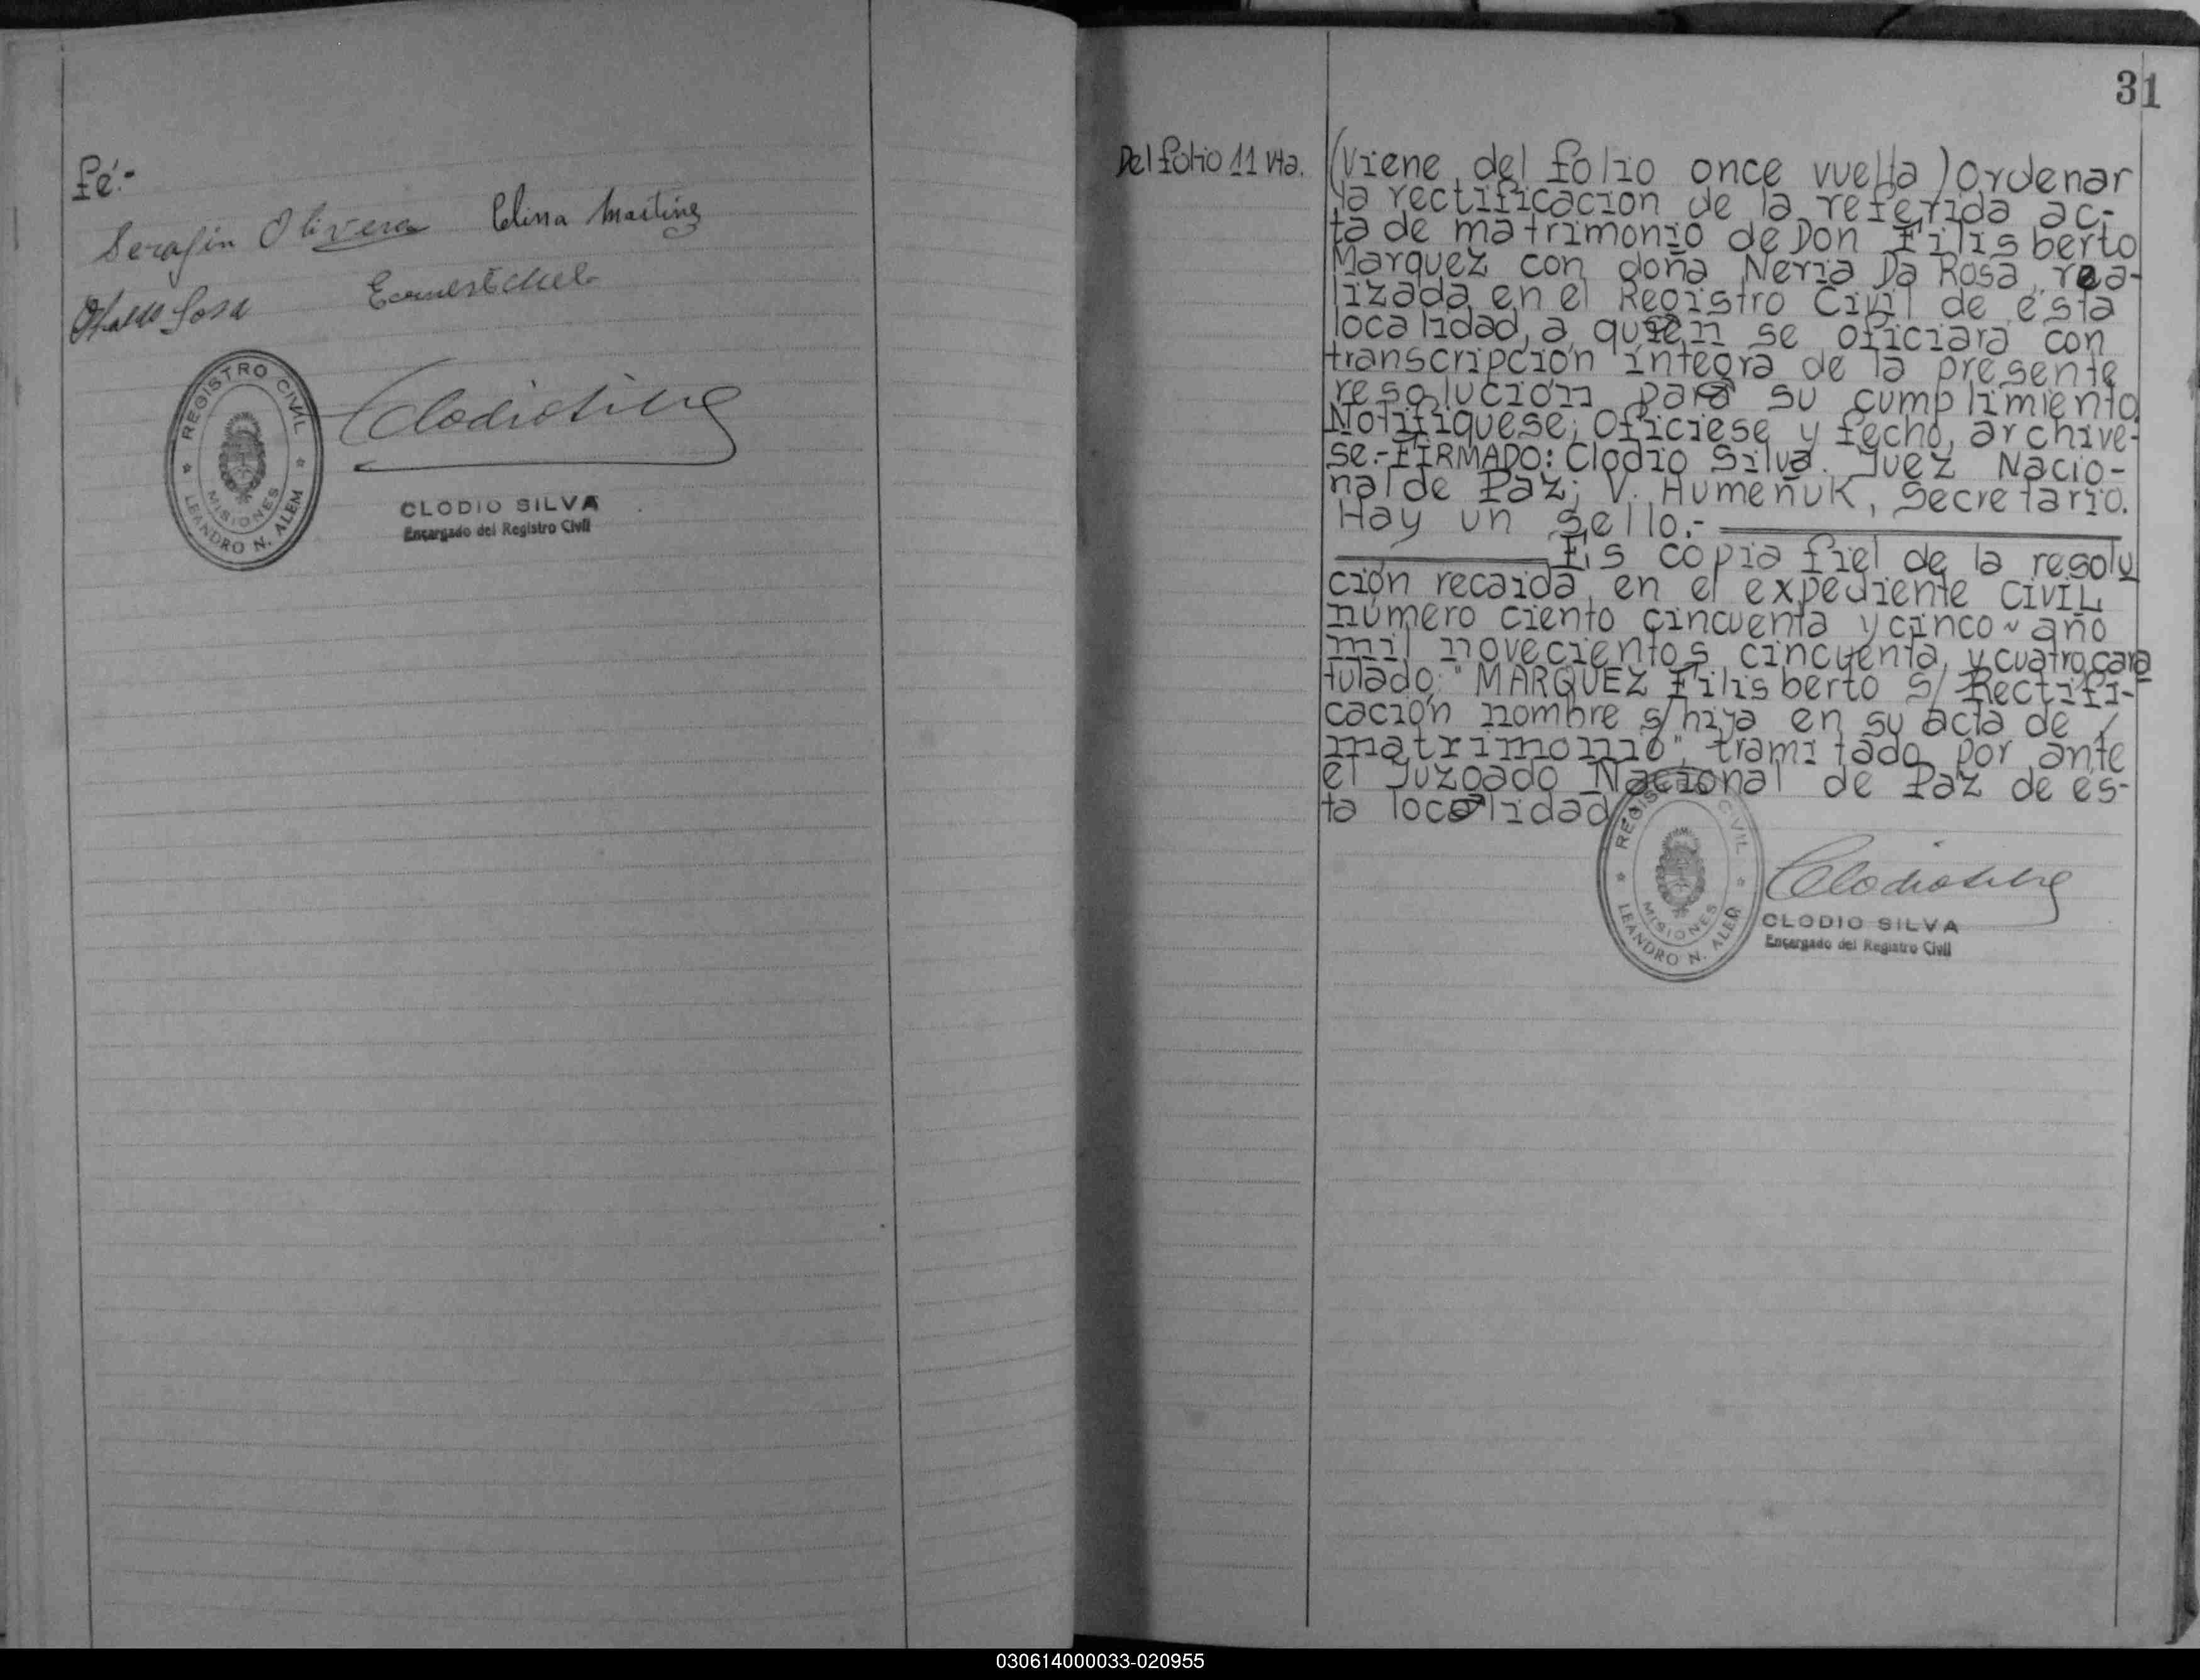 fé.-
Serafin Olivera Celina Martinez
Sosa
REGISTRO CIVIL
MISIONES
LEANDRO N. ALEM
Clodio Silva
CLODIO SILVA
Encargado del Registro Civil
31
Del folio 11 vta.
(Viene del folio once vuelta) Ordenar
la rectificacion de la referida ac-
ta de matrimonio de Don Filisberto
Marquez con doña Neria Da Rosa, rea-
lizada en el Registro Civil de ésta
localidad, a quien se oficiara con
transcripción íntegra de la presente
resolución para su cumplimiento
Notifíquese; Ofíciese y fecho, archive-
se.-FIRMADO: Clodio Silva. Juez Nacio-
nal de Paz; V. Humeñuk, Secretario.
Hay un sello.-
Es copia fiel de la resolu
ción recaida en el expediente CIVIL
número ciento cincuenta y cinco ~ año
mil novecientos cincuenta y cuatro, cara
tulado: "MARQUEZ Filisberto S/ Rectifi-
cación nombre s/hija en su acta de /
matrimonio", tramitado por ante
el Juzgado Nacional de Paz de és-
ta localidad
REGISTRO CIVIL
MISIONES
LEANDRO N. ALEM
Clodio Silva
CLODIO SILVA
Encargado del Registro Civil
030614000033-020955